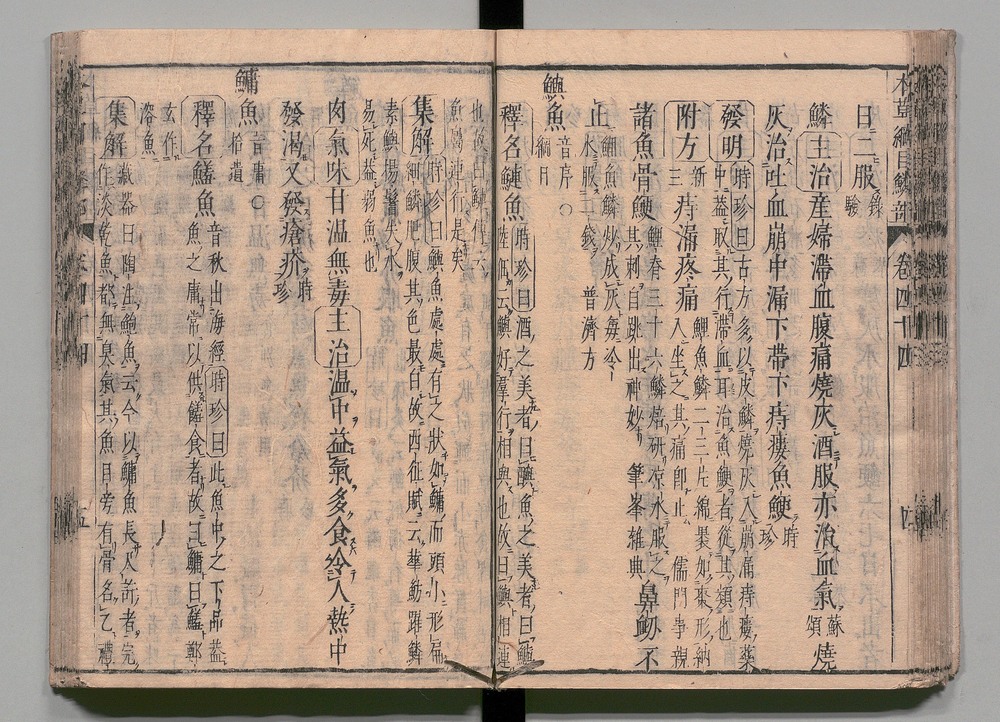 日二服
錄
驗
鱗主治産婦滯血腹痛燒灰酒服亦治血氣蘇頌燒
灰治吐血崩中漏下帶下痔瘻魚鯁時珍
發明時珍曰古方多以皮鱗燒灰入崩漏痔瘻藥
中蓋取其行滯血耳治魚鯁者從其類也
附方新三痔漏疼痛鯉魚鱗二三片綿裹如棗形納
入坐之其痛卽止儒門事親
諸魚骨鯁鯉脊三十六鱗焙研凉水服之
其刺自跳出神妙筆峯雜興鼻衄不
止鯉魚鱗炒成灰每冷
水服二錢普濟方
鱮魚音序○
綱目
釋名鰱魚時珍曰酒之美者曰醹魚之美者曰鱮
陸佃云鱮好羣行相與也故曰鱮相連
也故曰鰱傳云
魚屬連行是矣
集解時珍曰鱮魚處處有之狀如鱅而頭小形扁
細鱗肥腹其色最白故西征賦云華魴躍鱗
素鱮揚鬐失水
易死蓋弱魚也
肉氣味甘温無毒主治温中益氣多食令人熱中
發渴又發瘡疥時珍
鱅魚音庸○
拾遺
釋名鱃魚音秋出海經時珍曰此魚中之下品蓋
魚之庸常以供饈食者故曰鱅曰鱃鄭
玄作
溶魚
集解藏器曰陶注鮑魚云今以鱅魚長尺許者完
作淡乾魚都無臭氣其魚目旁有骨名乙禮
本草綱目鱗部
卷四十四